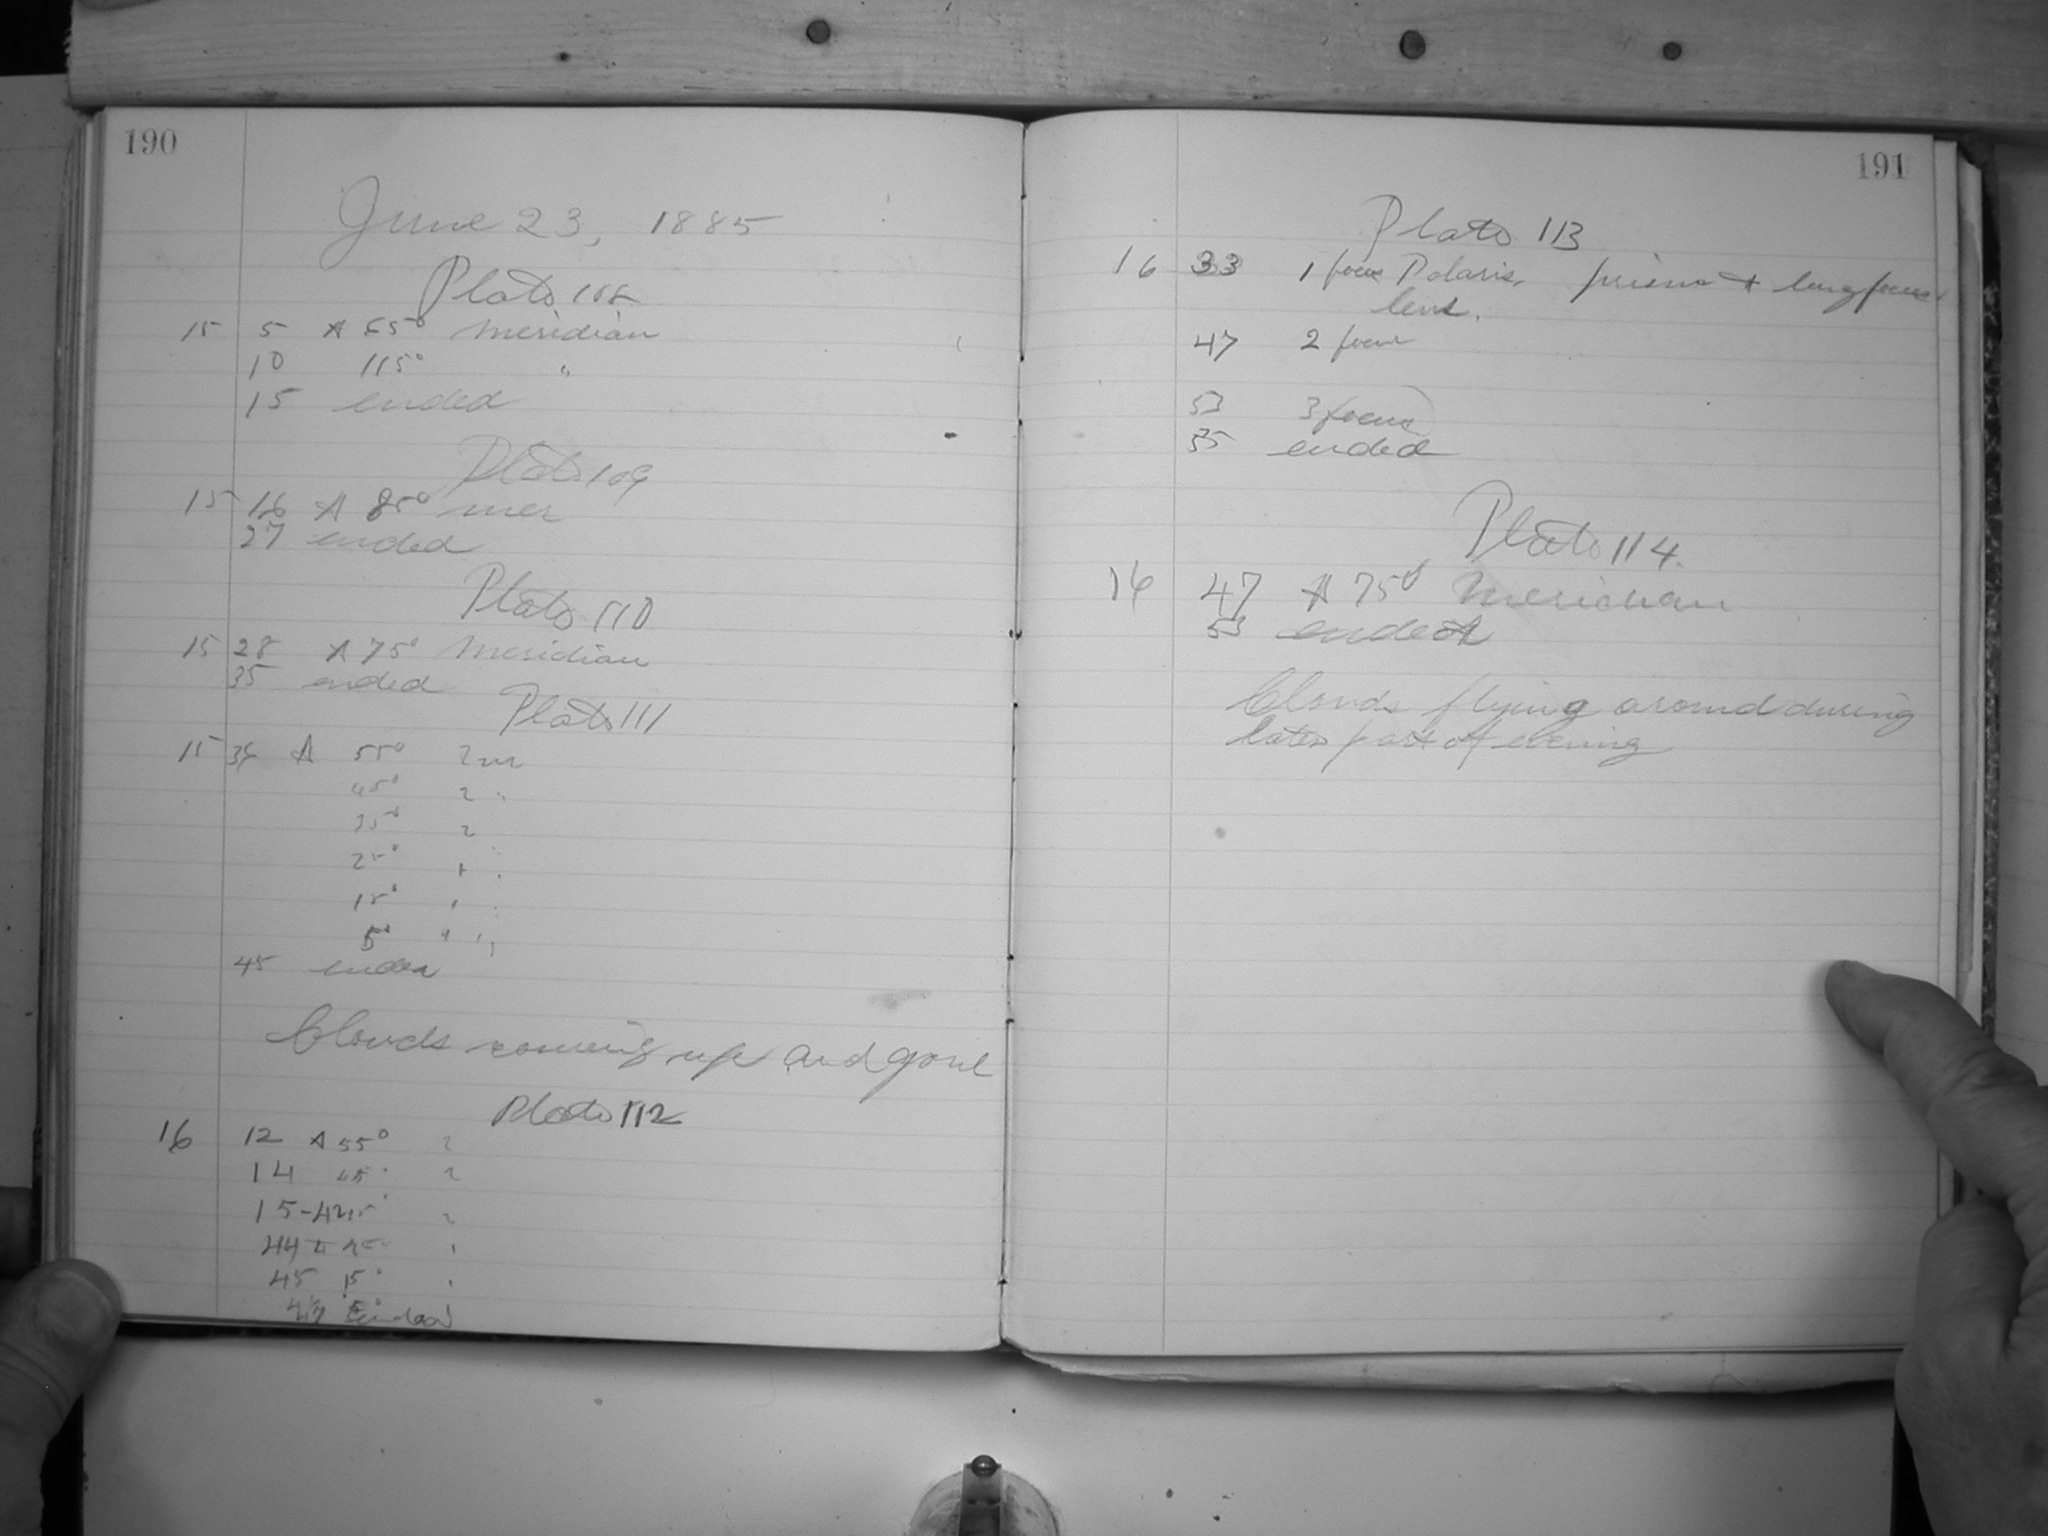 190
June 23, 1885
Plate 108
15 5 A 65° meridian
10 115° "
15 ended
Plate 109
15 16 A 85° mer
27 ended
Plate 110
15 28 A 75° meridian
35 ended
Plate 111
15 36 A 55° 2 m
45° 2 "
35° 2
25°
15°
5° " "
45 ended
Clouds coming up and gone
Plate 112
16 12 A 55° 2
14 45° 2
15-42
44
45 15°
47 Ended
191
Plate 113
16 33 1 focus Polaris, prism + long focus
lens.
47 2 focus
53 3 focus
55 ended
Plate 114
16 47 A 75° Meridian
53 ended
Clouds flying around during
later part of evening